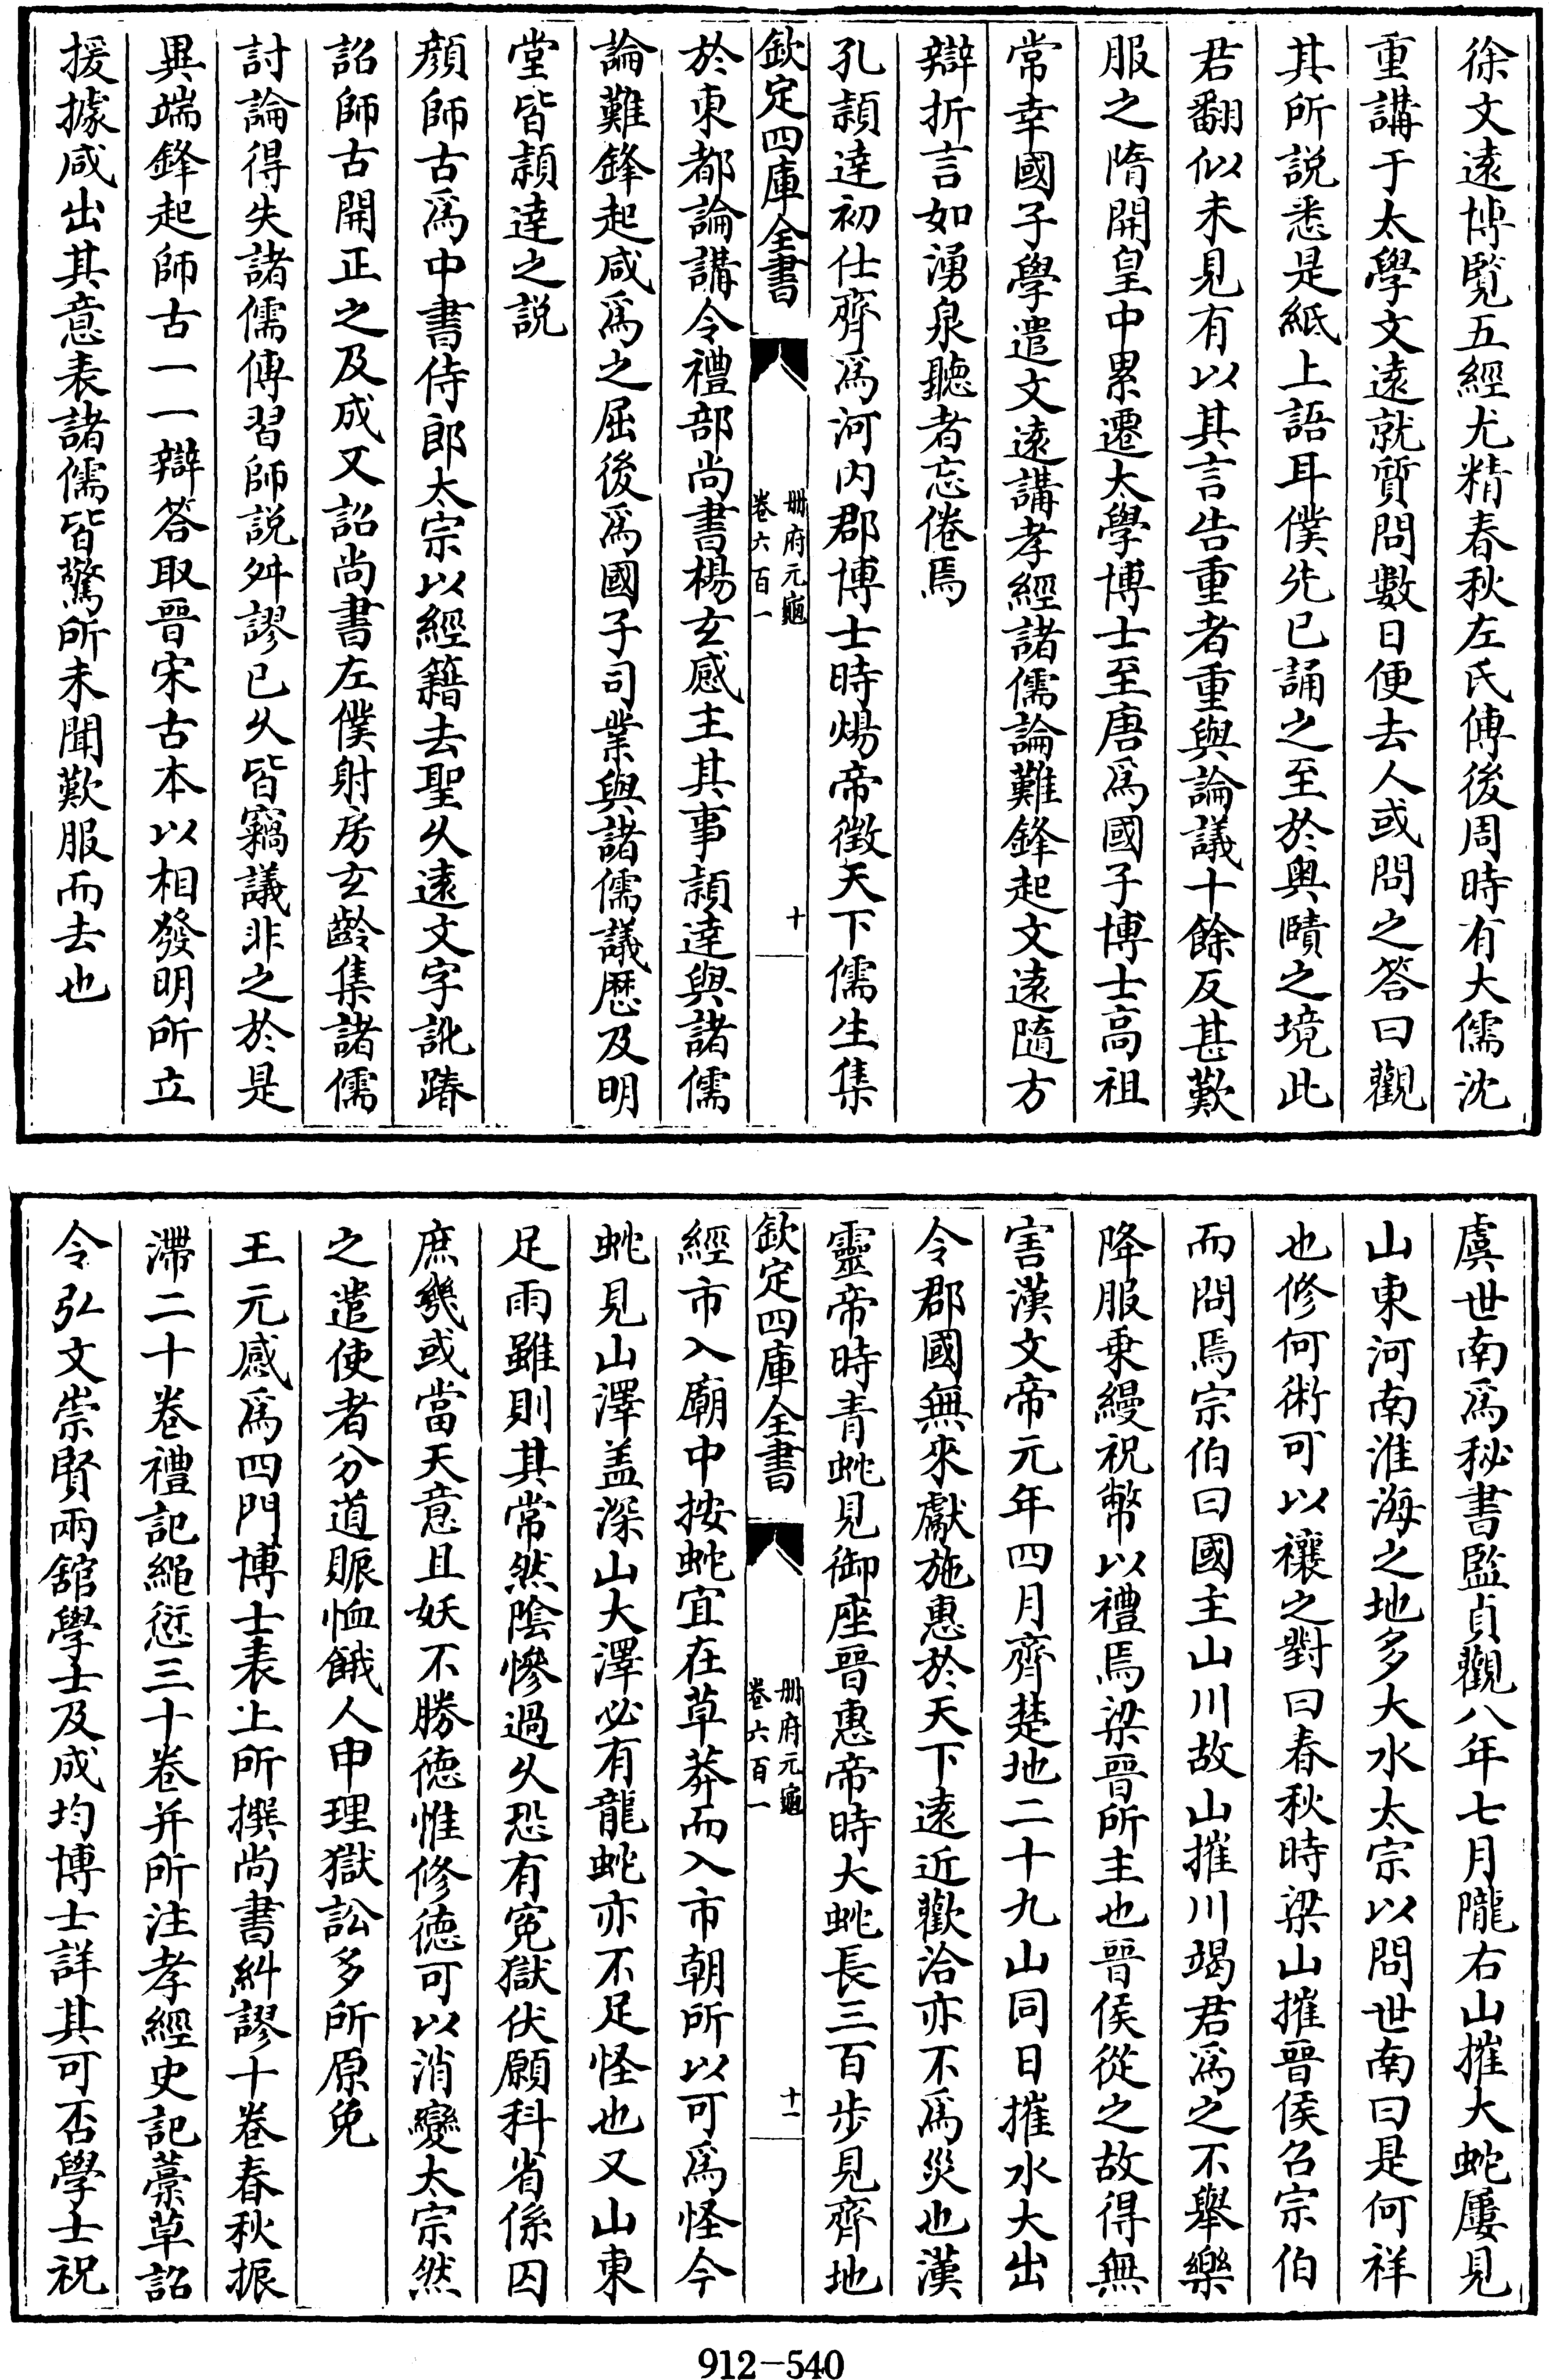 徐文遠博覽五經尤精春秋左氏傳後周時有大儒沈
重講于太學文遠就質問數日便去人或問之答曰觀
其所説悉是紙上語耳僕先已誦之至於奥賾之境此
君翻似未見有以其言告重者重與論議十餘反甚歎
服之隋開皇中累遷太學博士至唐爲國子博士高祖
常幸國子學遣文遠講孝經諸儒論難鋒起文遠隨方
辯折言如湧泉聽者忘倦焉
孔頴達初仕齊爲河内郡博士時煬帝徴天下儒生集
欽定四庫全書
册府元龜
卷六百一
十
於東都論講令禮部尚書楊玄感主其事頴達與諸儒
論難鋒起咸爲之屈後爲國子司業與諸儒議歴及明
堂皆頴達之説
顔師古爲中書侍郎太宗以經籍去聖乆遠文字訛踳
詔師古開正之及成又詔尚書左僕射房玄齡集諸儒
討論得失諸儒傳習師説舛謬已乆皆竊議非之於是
異端鋒起師古一一辯答取晉宋古本以相發明所立
援據咸出其意表諸儒皆驚所未聞歎服而去也
虞世南爲秘書監貞觀八年七月隴右山摧大蛇屢見
山東河南淮海之地多大水太宗以問世南曰是何祥
也修何術可以禳之對曰春秋時梁山摧晉侯召宗伯
而問焉宗伯曰國主山川故山摧川竭君爲之不舉樂
降服乗縵祝幣以禮焉梁晉所主也晉侯從之故得無
害漢文帝元年四月齊楚地二十九山同日摧水大出
令郡國無來獻施惠於天下遠近歡洽亦不爲災也漢
靈帝時青蛇見御座晉惠帝時大蛇長三百步見齊地
欽定四庫全書
册府元龜
卷六百一
十一
經市入廟中按蛇宜在草莽而入市朝所以可爲怪今
蛇見山澤盖深山大澤必有龍蛇亦不足怪也又山東
足雨雖則其常然隂慘過乆恐有寃獄伏願科省係囚
庶幾或當天意且妖不勝徳惟修徳可以消變太宗然
之遣使者分道賑恤餓人申理獄訟多所原免
王元感爲四門博士表上所撰尚書糾謬十卷春秋振
滯二十卷禮記繩愆三十卷并所注孝經史記藁草詔
令弘文崇賢兩舘學士及成均博士詳其可否學士祝
912－540